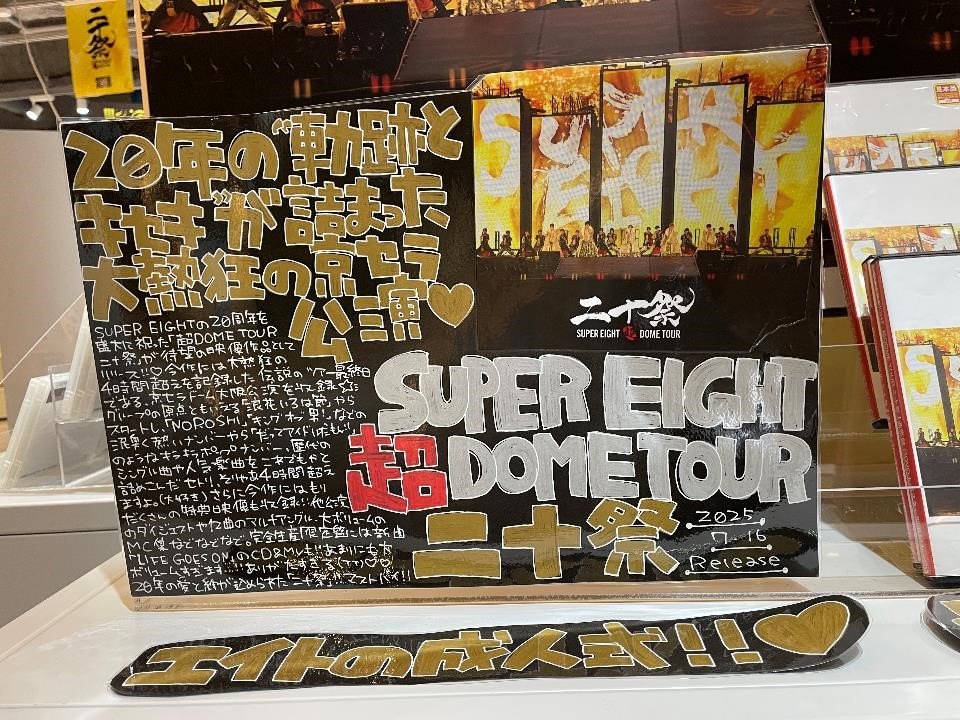 20年の"軌跡と
キセキ"が詰まった
大熱狂の京セラ
公演♡
SUPER EIGHTの20周年を
盛大に祝った「超DOME TOUR
二十祭」が待望の映像作品として
リリース!!♡今作には大熱狂の
4時間超えを記録した伝説のツアー最終日
である、京セラドーム大阪公演を収録☆
グループの原点ともいえる「浪花いろは節」から
スタートし、「NOROSHI」「キング オブ 男!」などの
泥臭く熱いナンバーから「だってアイドルだもん!」
のようなキラキラポップナンバー、歴代の
シングル曲や人気歌曲をこれでもかと
詰めこんだセトリ、そりゃあ4時間超え
ますよね。(大好き)さらに今作にはもり
だくさんの特典映像も収録!!他公演
のダイジェストや12曲のマルチアングル、大ボリュームの
MC集などなどなど。完全生産限定盤には新曲
「LIFE GOES ON」のCD&MVも!!あまりにも大
ボリュームすぎます…!!ありがたすぎる(TT)♡♡
20年の愛と絆が込められた「二十祭」、マストバイ!!
SUPER EIGHT
二十祭
SUPER EIGHT 超 DOME TOUR
SUPER EIGHT
超DOME TOUR
二十祭
2025
7.16
Release
エイトの成人式!!♡
二十祭
見本品